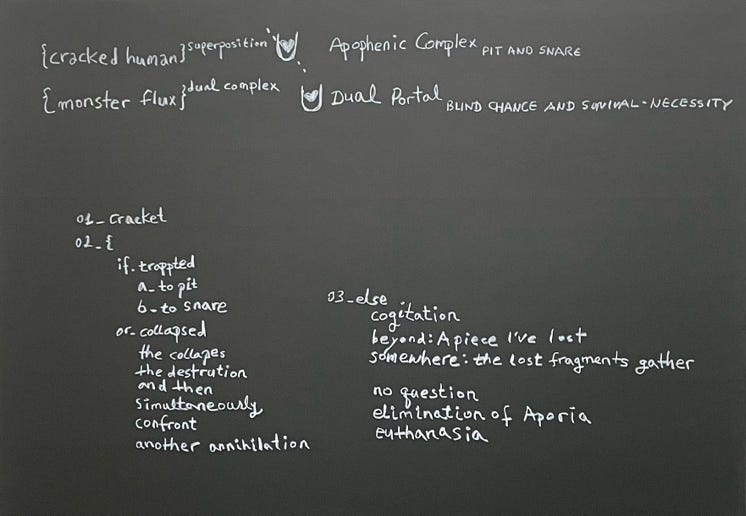 {cracked human}superposition Apophenic Complex PIT AND SNARE
{monster flux}dual complex Dual Portal BLIND CHANCE AND SUVIVAL-NECESSITY
01_cracket
02_{
if.trappted
a_to pit
b_to snare
or_collapsed
the collapes
the destrution
and then
simultaneously
confront
another annihilation
03_else
cogitation
beyond: A piece I've lost
somewhere: the lost fragments gather
no question
elimination of Aporia
euthanasia